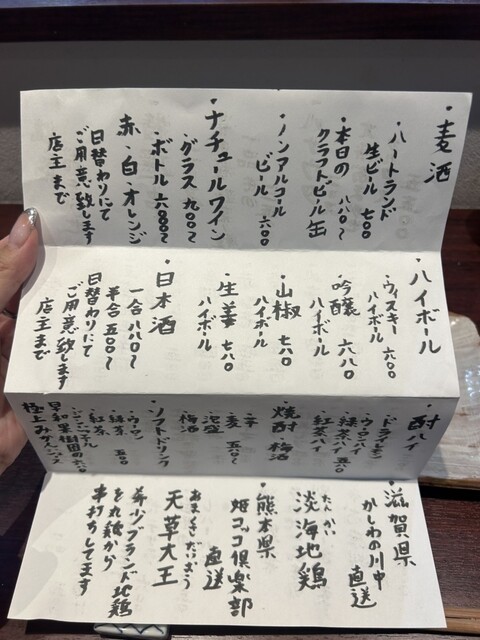 麦酒
・ハートランド
生ビール 七〇〇
・本日の 八八〇〜
クラフトビール缶
・ノンアルコール
ビール 六〇〇
・ナチュールワイン
・グラス 九〇〇〜
・ボトル 六〇〇〇〜
赤・白・オレンジ
日替わりにて
ご用意致します
店主まで
・ハイボール
・ウィスキー
ハイボール 六〇〇
・吟醸
ハイボール 六八〇
・山椒
ハイボール 七八〇
・生姜
ハイボール 七八〇
・日本酒
一合 八八〇〜
半合 五〇〇〜
日替わりにて
ご用意致します
店主まで
・酎ハイ
・ウーロンハイ
・緑茶ハイ 五八〇
・紅茶ハイ
・焼酎・梅酒
・芋
・麦 五八〇〜
・泡盛
・梅酒
・ソフトドリンク
・ウーロン
・緑茶 五〇〇
・紅茶
・ジンジャーエール
・早和果樹園の 六八〇
極上みかんジュース
・滋賀県
かしわの川中
直送
たんかい
淡海地鶏
・熊本県
姫コッコ倶楽部
直送
あまくさだいおう
天草大王
希少ブランド地鶏
を丸鶏から
串打ちしてます